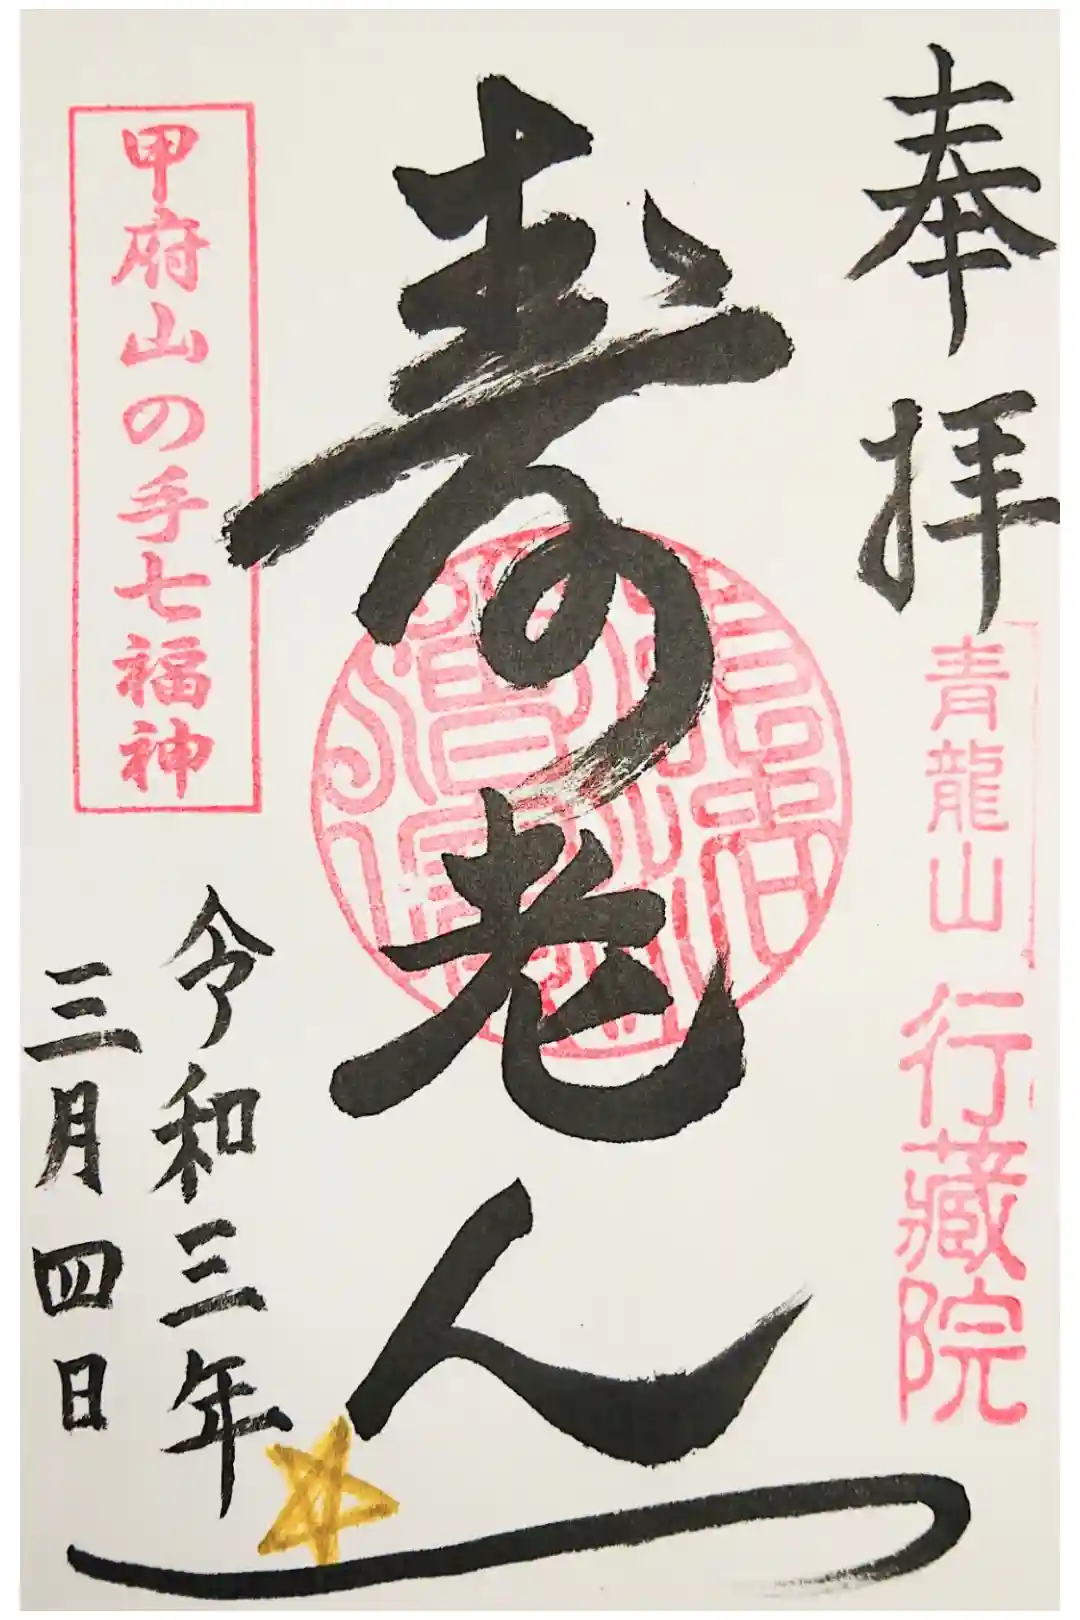 奉拝
青龍山
行蔵院
寿老人
甲府山の手七福神
令和三年
三月四日